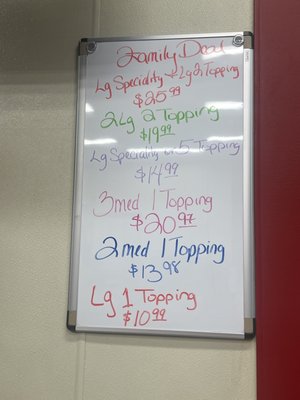 Family Deal
Lg Speciality + Lg 2 Topping
$25.99
2 Lg 2 Topping
$19.99
Lg Speciality or 5 Topping
$14.99
3 med 1 Topping
$20.97
2 med 1 Topping
$13.98
Lg 1 Topping
$10.99